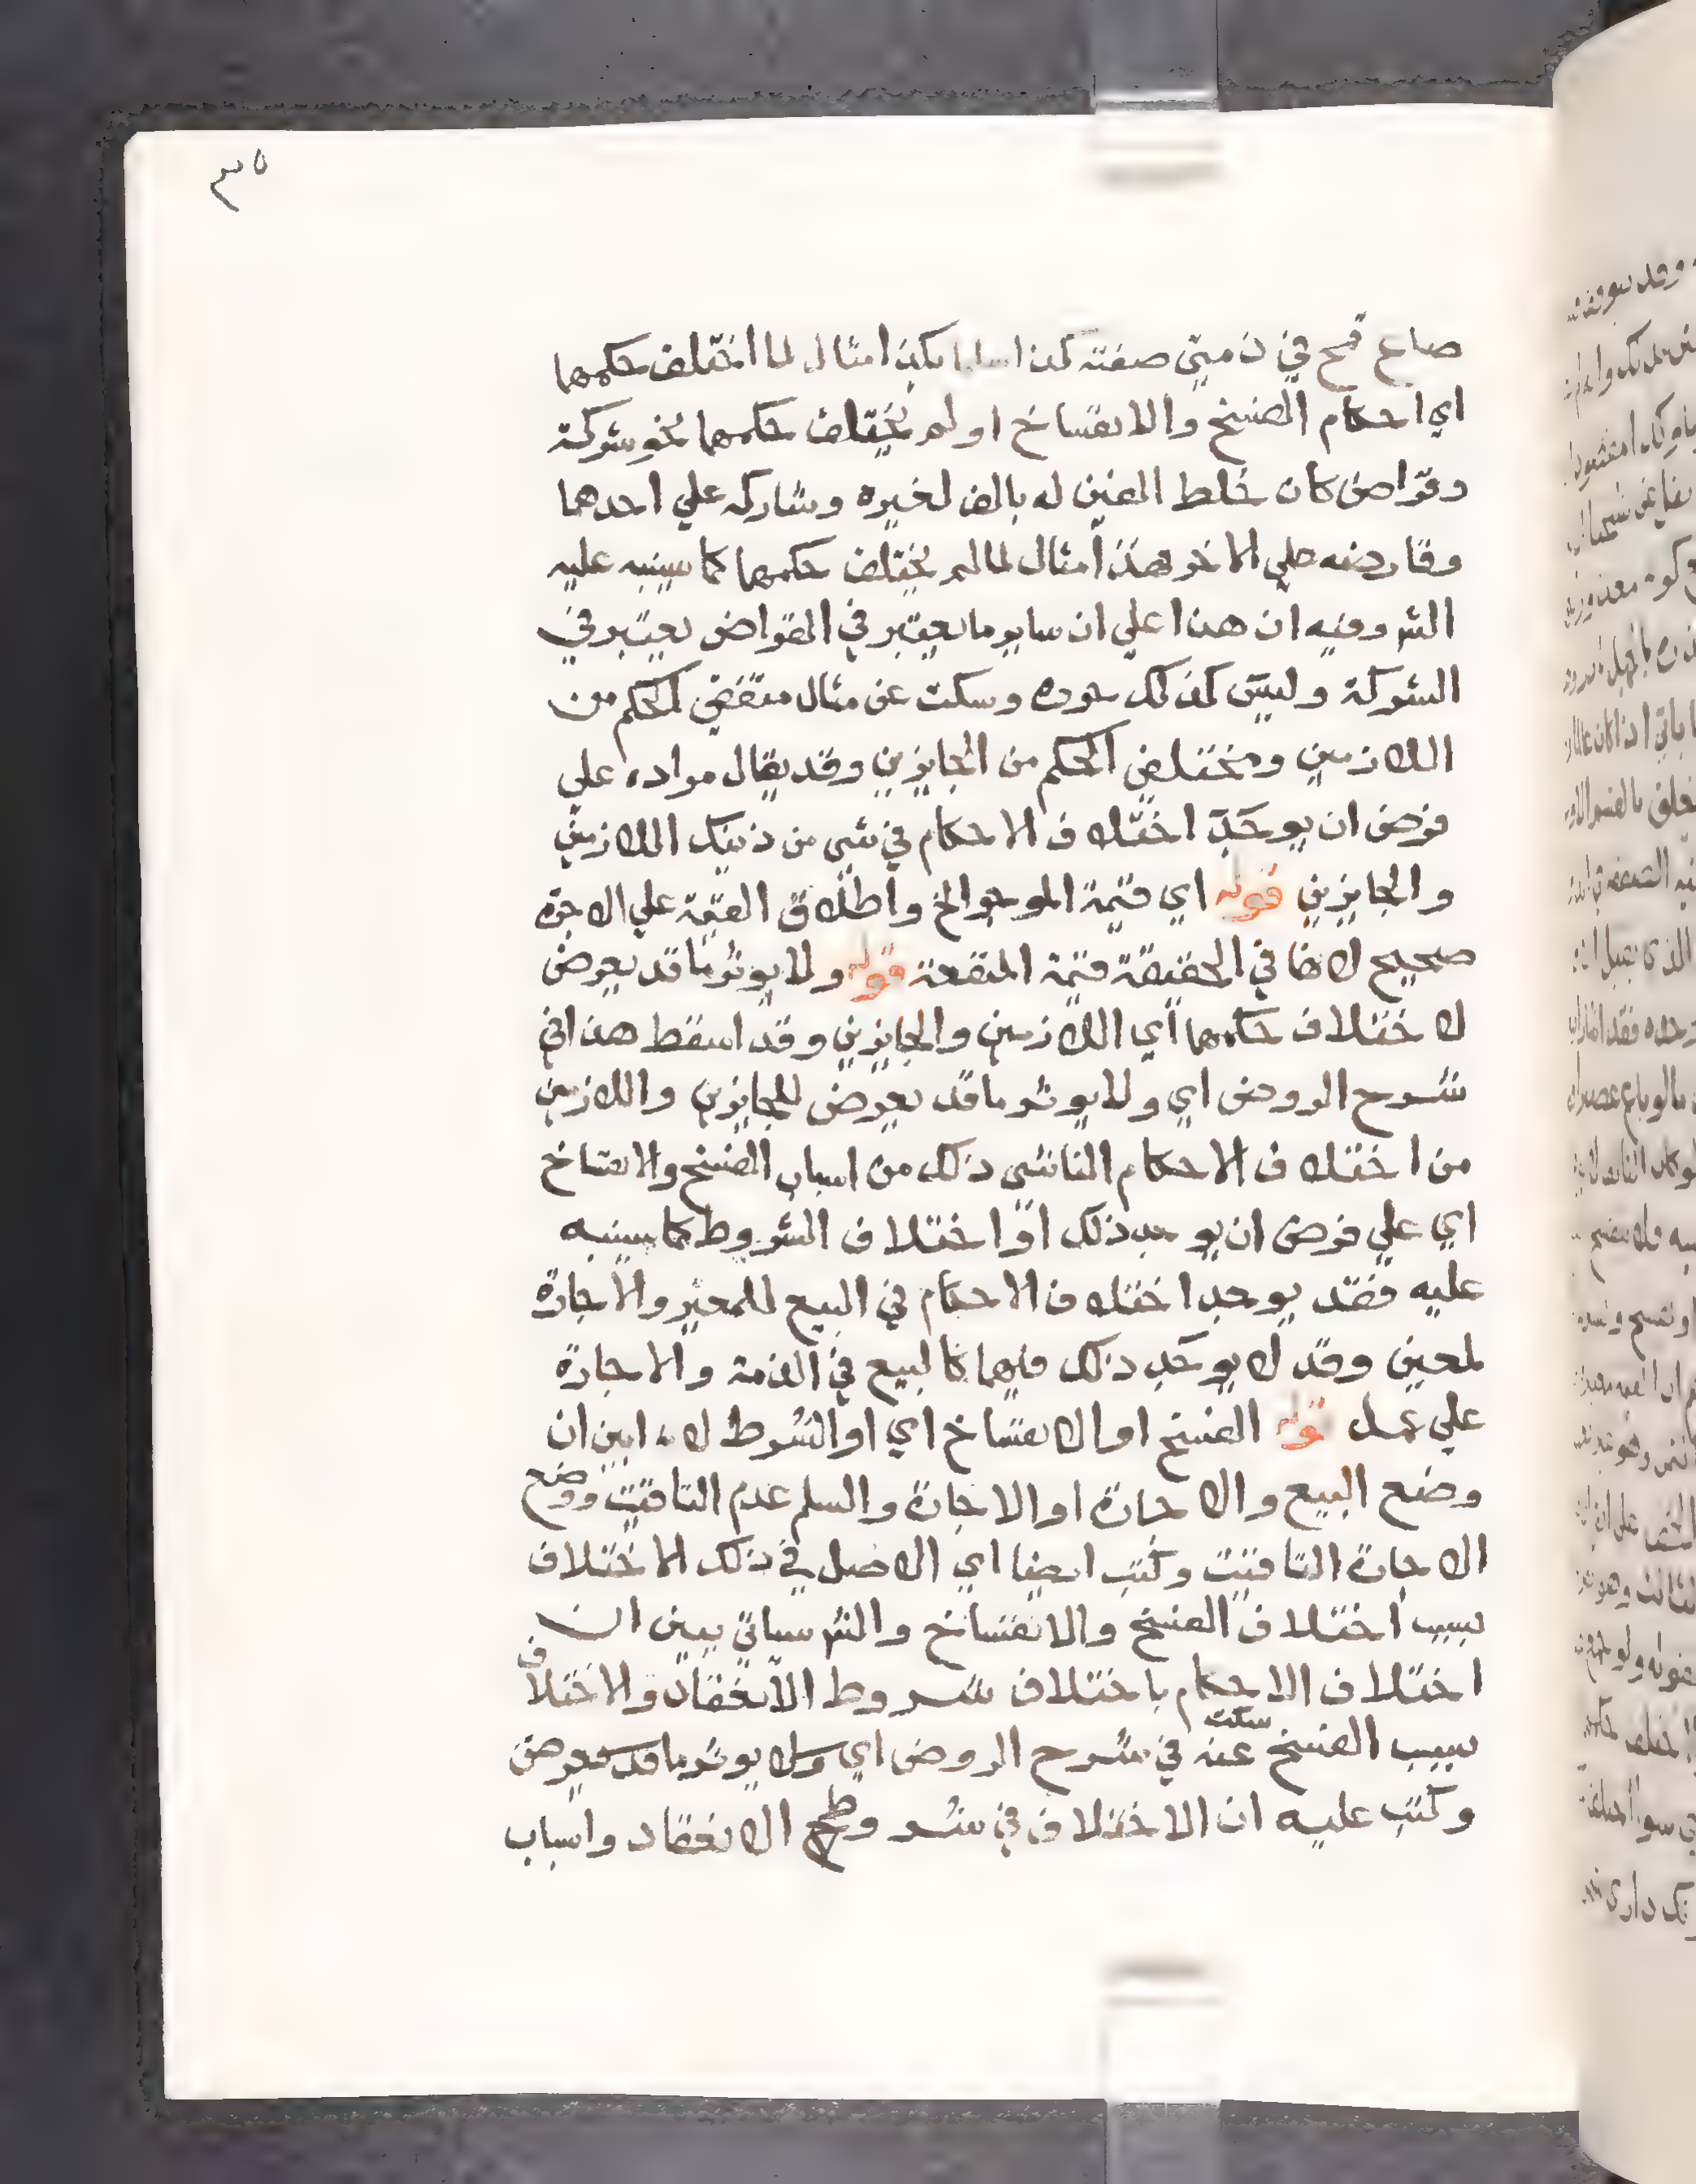 ٣٥
صاع قمح في ذمتي صفته كذا بكذا مثال لما اختلف حكمهما
اي احكام الفسخ والانفساخ او لم يختلف حكمهما نحو شركة
وقراض كان خلط الفين له بالف لغيره وشاركه علي احدهما
وقارضه علي الاخر هذا مثال لما لم يختلف حكمهما كما سينبه عليه
الشر وفيه ان هذا علي ان ساير ما يعتبر في القراض يعتبر في
الشركة وليس كذلك حوره وسكت عن مثال متفقي الحكم من
اللازمين ومختلفي الحكم من الجايزين وقد يقال مراده علي
فرض ان يوجد اختلاف الاحكام في شي من ذينك اللازمين
والجايزين قوله اي قيمة الموجر الخ واطلاق القيمة علي الاجرة
صحيح لانها في الحقيقة قيمة المنفعة قوله ولا يوثر ما قد يعرض
لاختلاف حكمهما اي اللازمين والجايزين وقد اسقط هذا في
شرح الروض اي ولا يوثر ما قد يعرض للجايزين واللازمين
من اختلاف الاحكام الناشي ذلك من اسباب الفسخ والانفساخ
اي علي فرض ان يوجد ذلك او اختلاف الشروط كما سينبه
عليه فقد يوجد اختلاف الاحكام في البيع للمعين والاجارة
لمعين وقد لا يوجد ذلك فيهما كالبيع في الذمة والاجارة
علي عمل قوله الفسخ او الانفساخ اي او الشروط لانه ابين ان
وضع البيع والاجارة او الاجارة والسلم عدم التاقيت ووضع
الاجارة التاقيت وكتب ايضا اي الاصل في ذلك الاختلاف
بسبب اختلاف الفسخ والانفساخ والشر سياتي يبين ان
اختلاف الاحكام باختلاف شروط الانعقاد والاختلاف
بسبب الفسخ سكت عنه في شرح الروض اي ولا يوثر ما قد يعرض
وكتب عليه ان الاختلاف في شروط الانعقاد واسباب